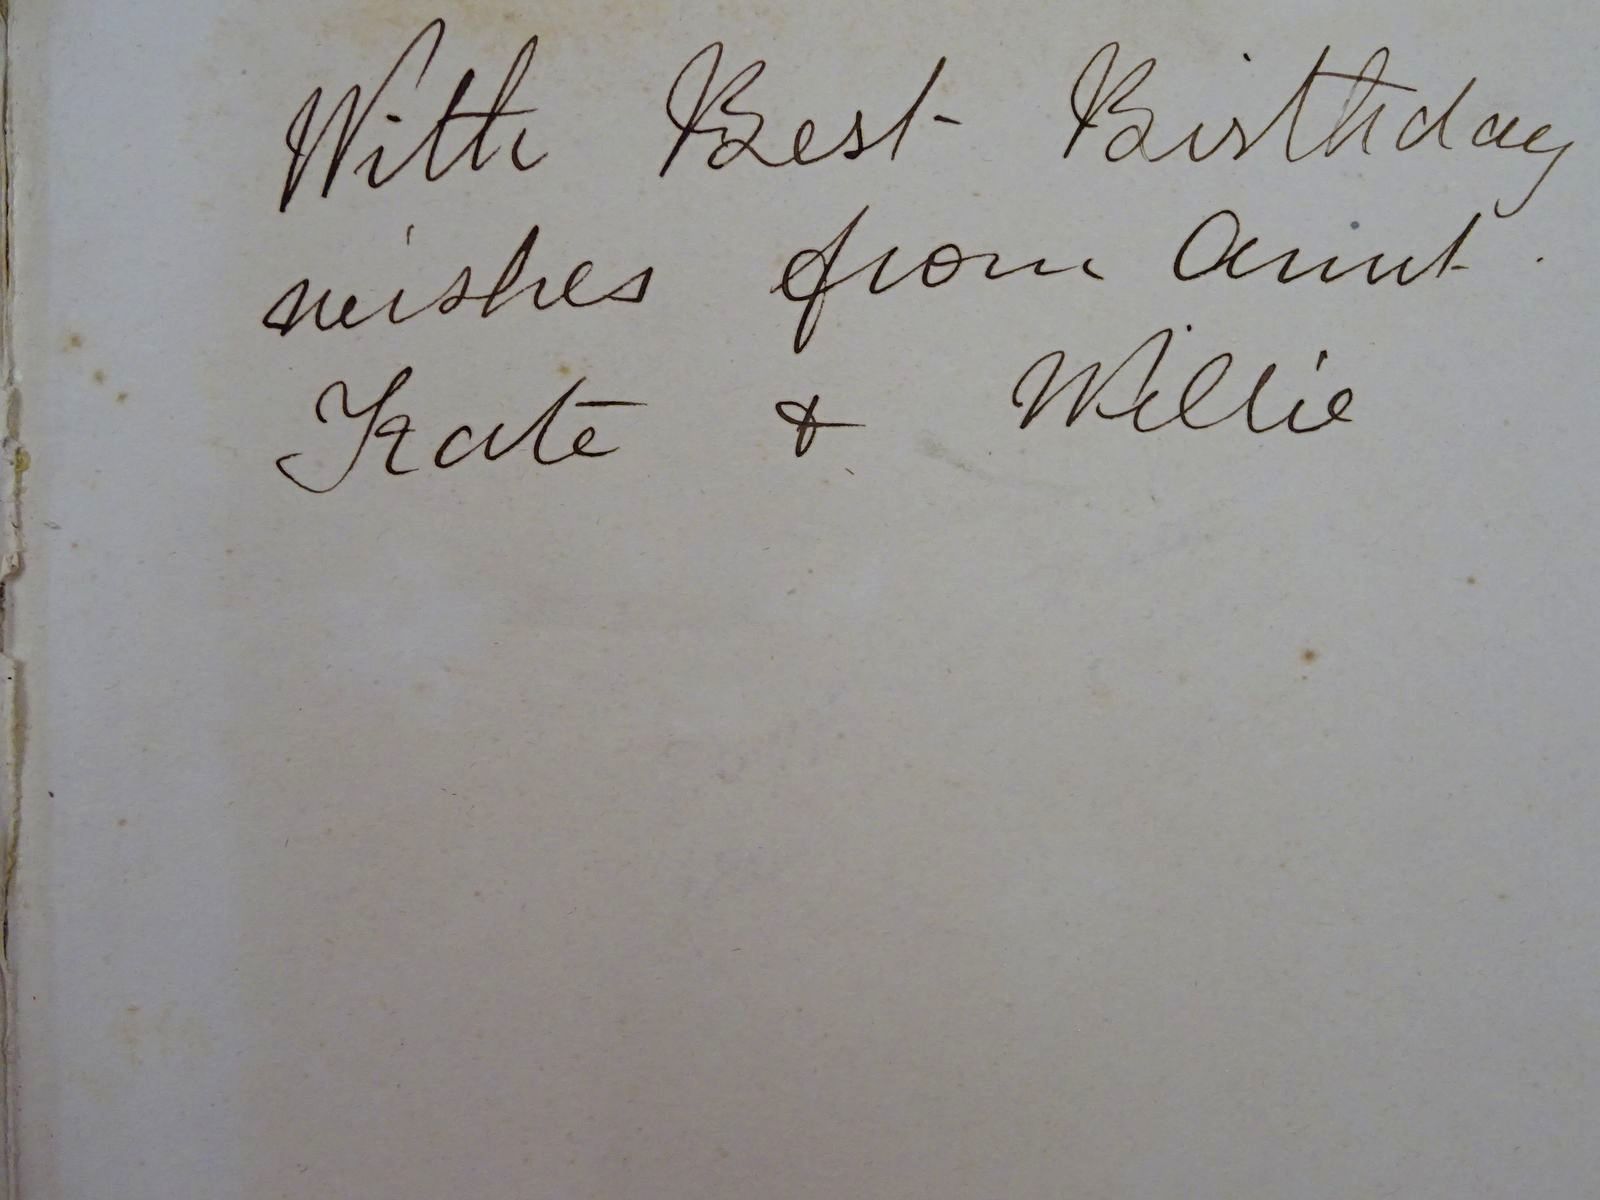 With Best Birthday
wishes from Aunt.
Kate & Willie